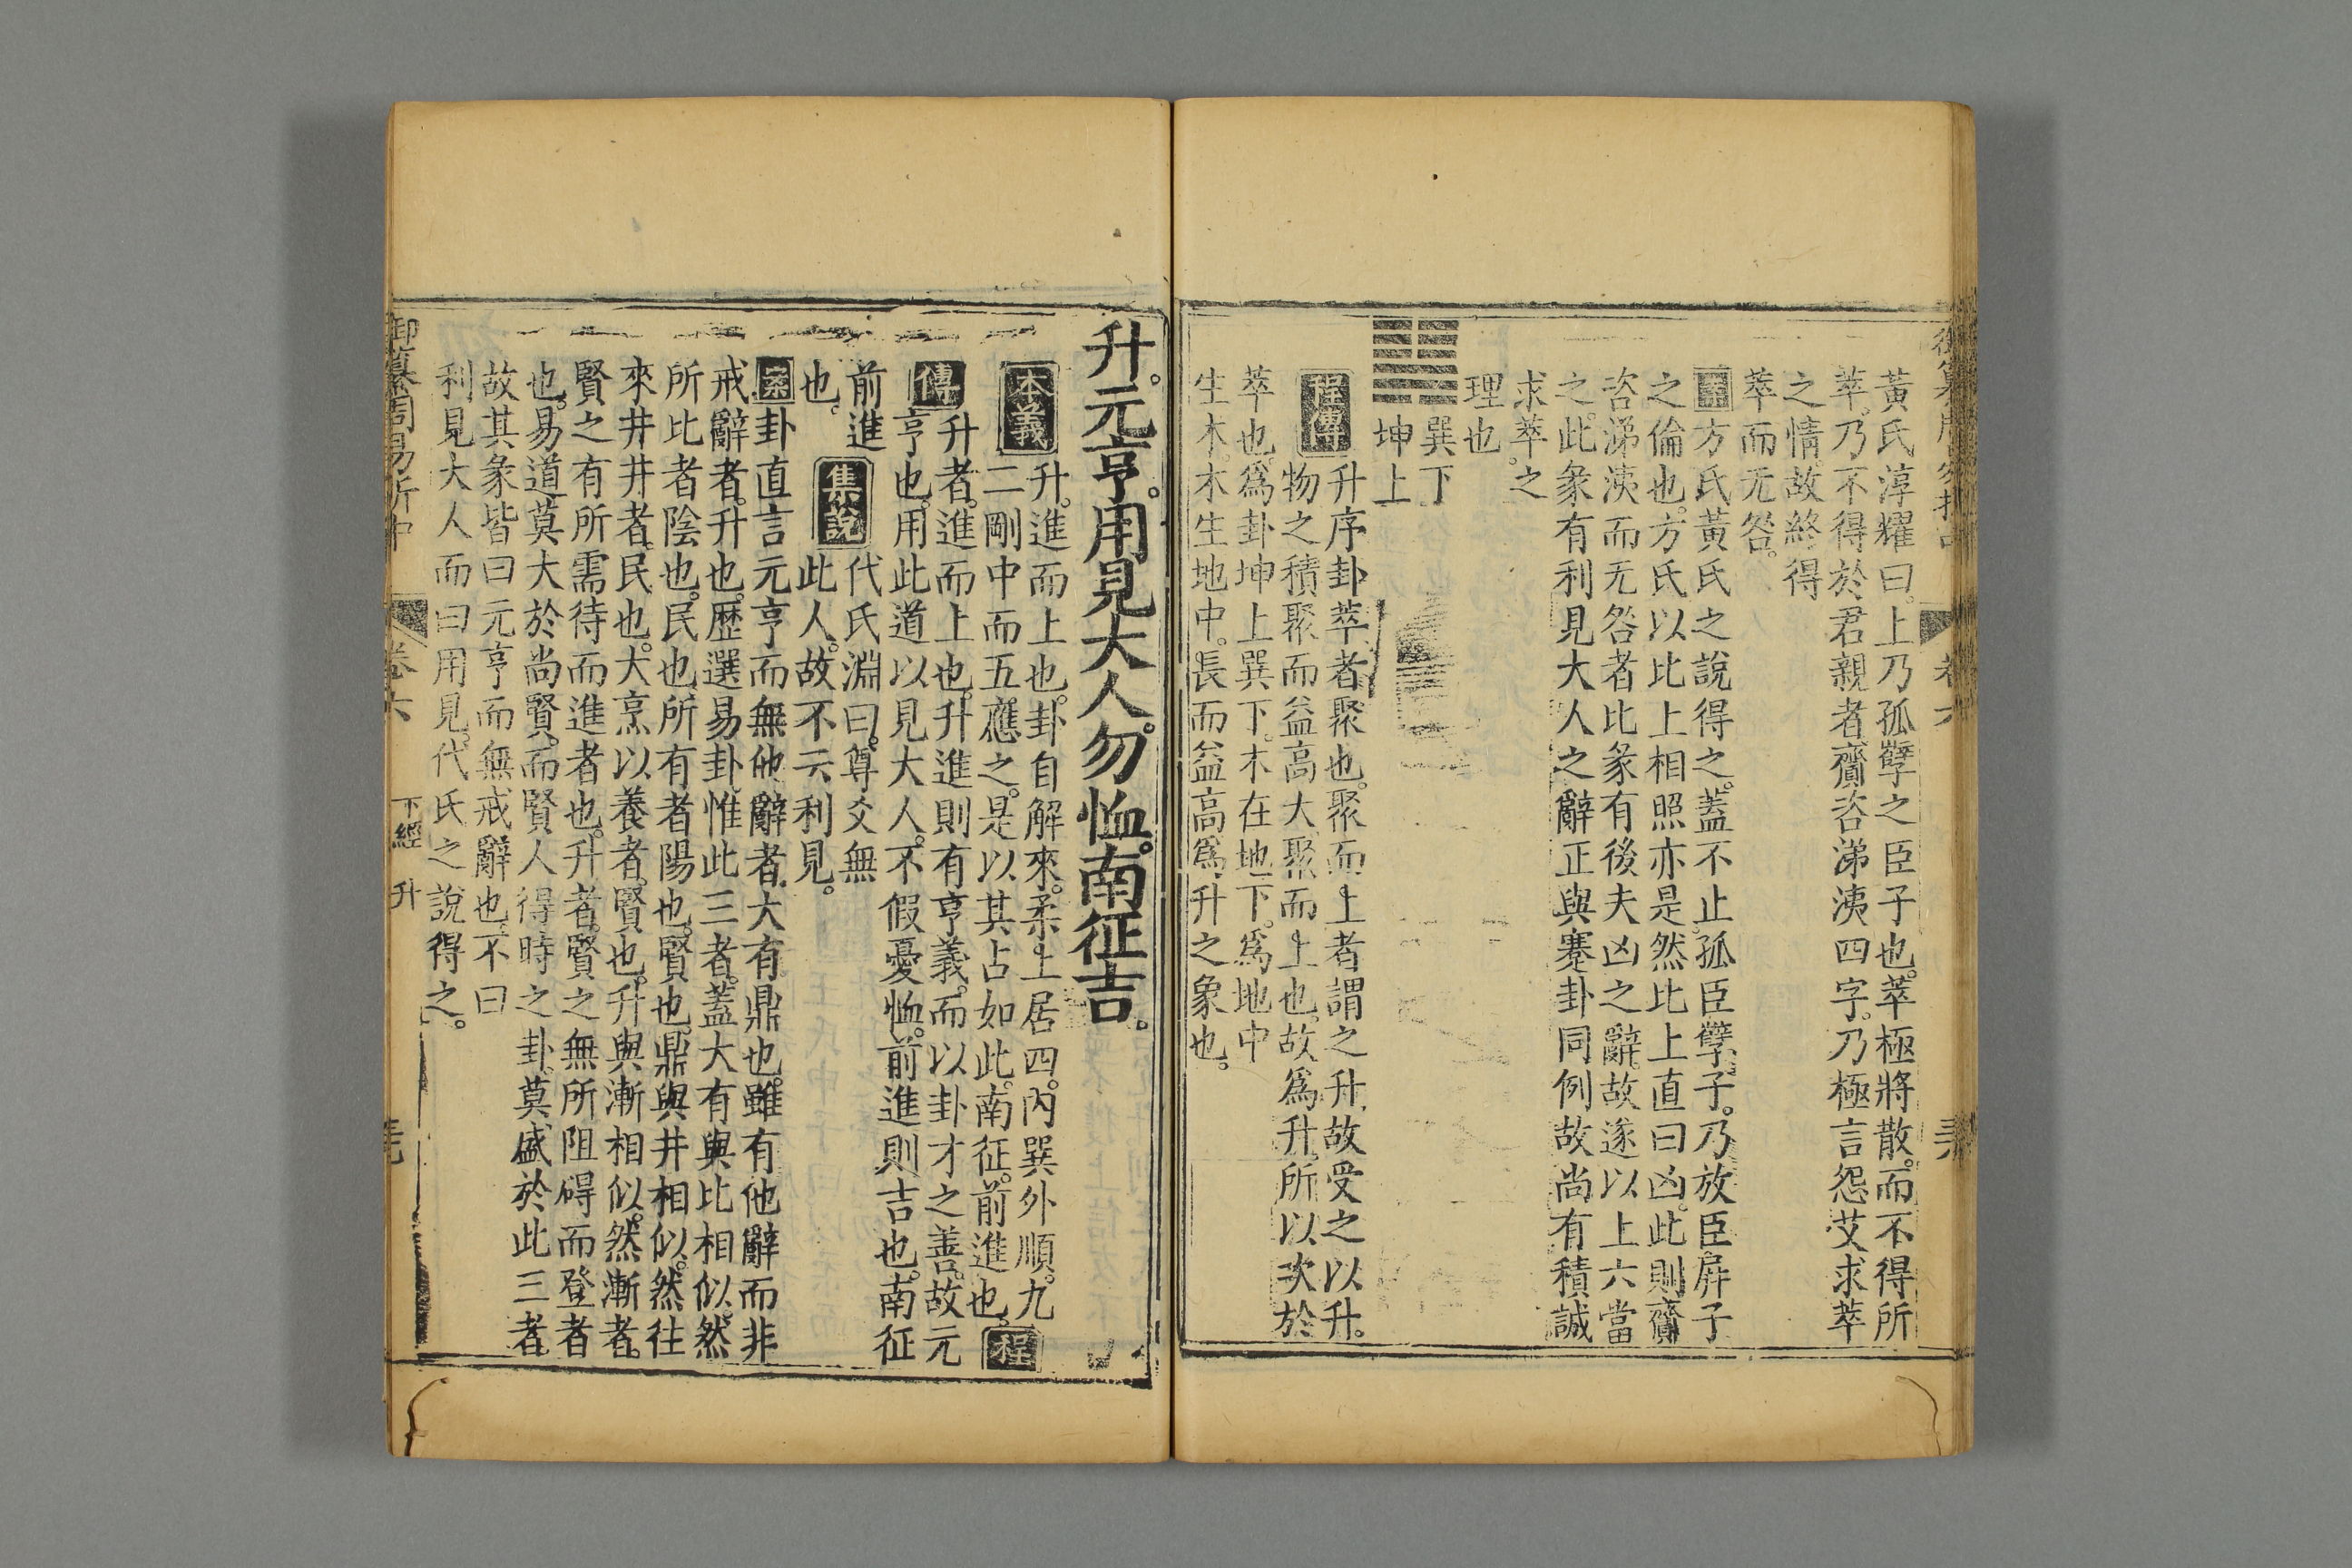 黃氏淳耀曰。上乃孤孽之臣子也。萃極將散。而不得所
萃。乃不得於君親者。齎咨涕洟四字。乃極言怨艾求萃
之情。故終得
萃而无咎。
案方氏黃氏之說得之。蓋不止孤臣孽子。乃放臣屛子
之倫也。方氏以比上相照亦是。然比上直曰凶。此則齎
咨涕洟而无咎者。比彖有後夫凶之辭。故遂以上六當
之。此彖有利見大人之辭。正與蹇卦同例。故尚有積誠
求萃之
理也。
巽下
坤上
程傳 升序卦萃者聚也。聚而上者謂之升。故受之以升。
物之積聚而益高大。聚而上也。故爲升。所以次於
萃也。爲卦坤上巽下。木在地下。爲地中
生木。木生地中。長而益高。爲升之象也。
升。元亨。用見大人。勿恤。南征吉。
本義 升。進而上也。卦自解來。柔上居四。內巽外順。九
二剛中而五應之。是以其占如此。南征。前進也。 程
傳 升者。進而上也。升進則有亨義。而以卦才之善。故元
亨也。用此道以見大人。不假憂恤。前進則吉也。南征
前進
也。 集說 代氏淵曰。尊爻無
此人。故不云利見。
案卦直言元亨而無他辭者。大有鼎也。雖有他辭而非
戒辭者。升也。歷選易卦。惟此三者。蓋大有與比相似。然
所比者陰也。民也。所有者陽也。賢也。鼎與井相似。然往
來井井者。民也。大烹以養者。賢也。升與漸相似。然漸者。
賢之有所需待而進者也。升者。賢之無所阻碍而登者
也。易道莫大於尚賢。而賢人得時之卦。莫盛於此三者。
故其彖皆曰元亨而無戒辭也。不曰
利見大人而曰用見。代氏之說得之。
御纂周易折中 卷六 下經 升